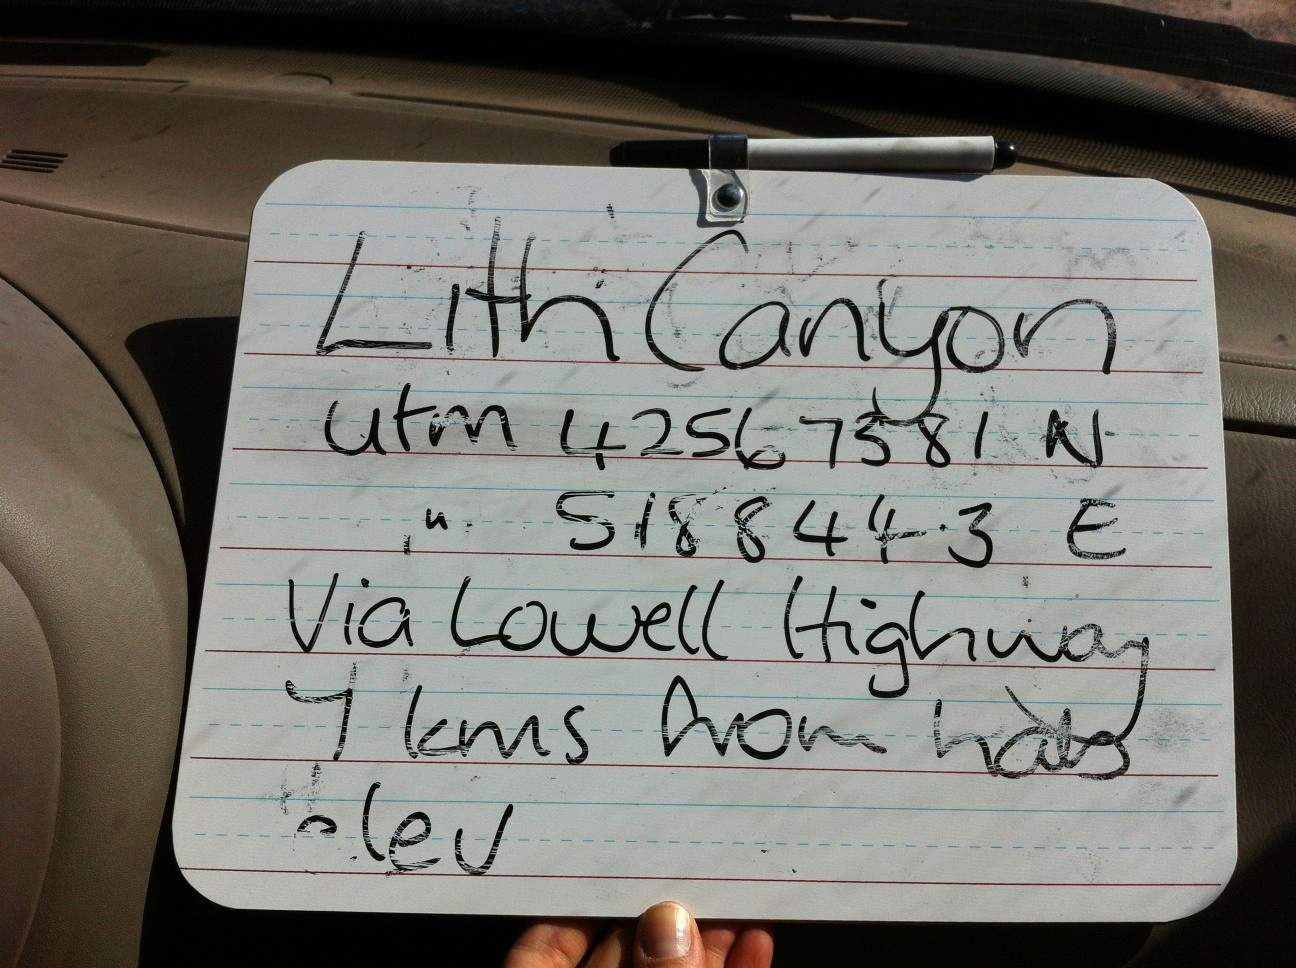 Lith Canyon
utm 42567381 N
" 518844.3 E
Via Lowell Highway
7 kms from hab
elev